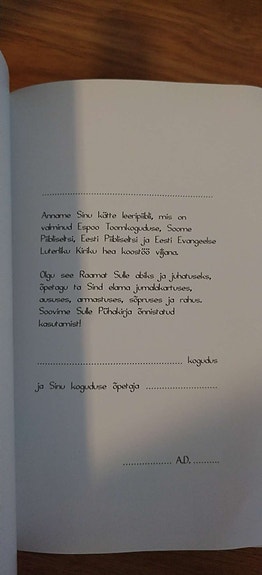 ..................................................................
Anname Sinu kätte leeripiibli, mis on
valminud Espoo Toomkoguduse, Soome
Piibliseltsi, Eesti Piibliseltsi ja Eesti Evangeelse
Luterliku Kiriku hea koostöö viljana.
Olgu see Raamat Sulle abiks ja juhatuseks,
õpetagu ta Sind elama jumalakartuses,
aususes, armastuses, sõpruses ja rahus.
Soovime Sulle Pühakirja õnnistatud
kasutamist!
........................................................ kogudus
ja Sinu koguduse õpetaja ...........................
.................. A.D. .........